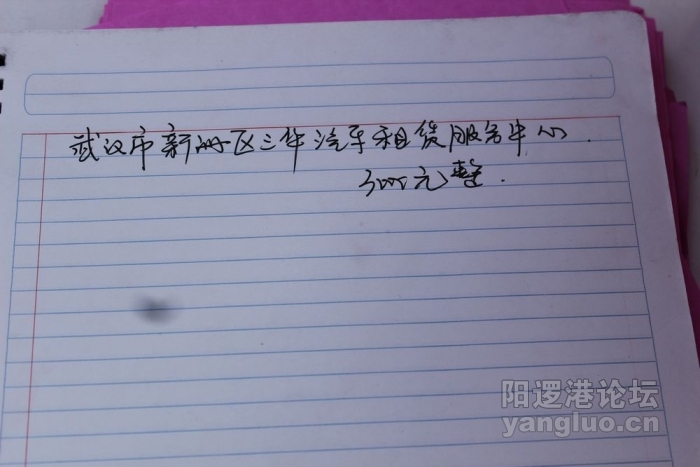 武汉市新洲区三华汽车租赁服务中心.
3000元整.
阳逻港论坛
yangluo.cn